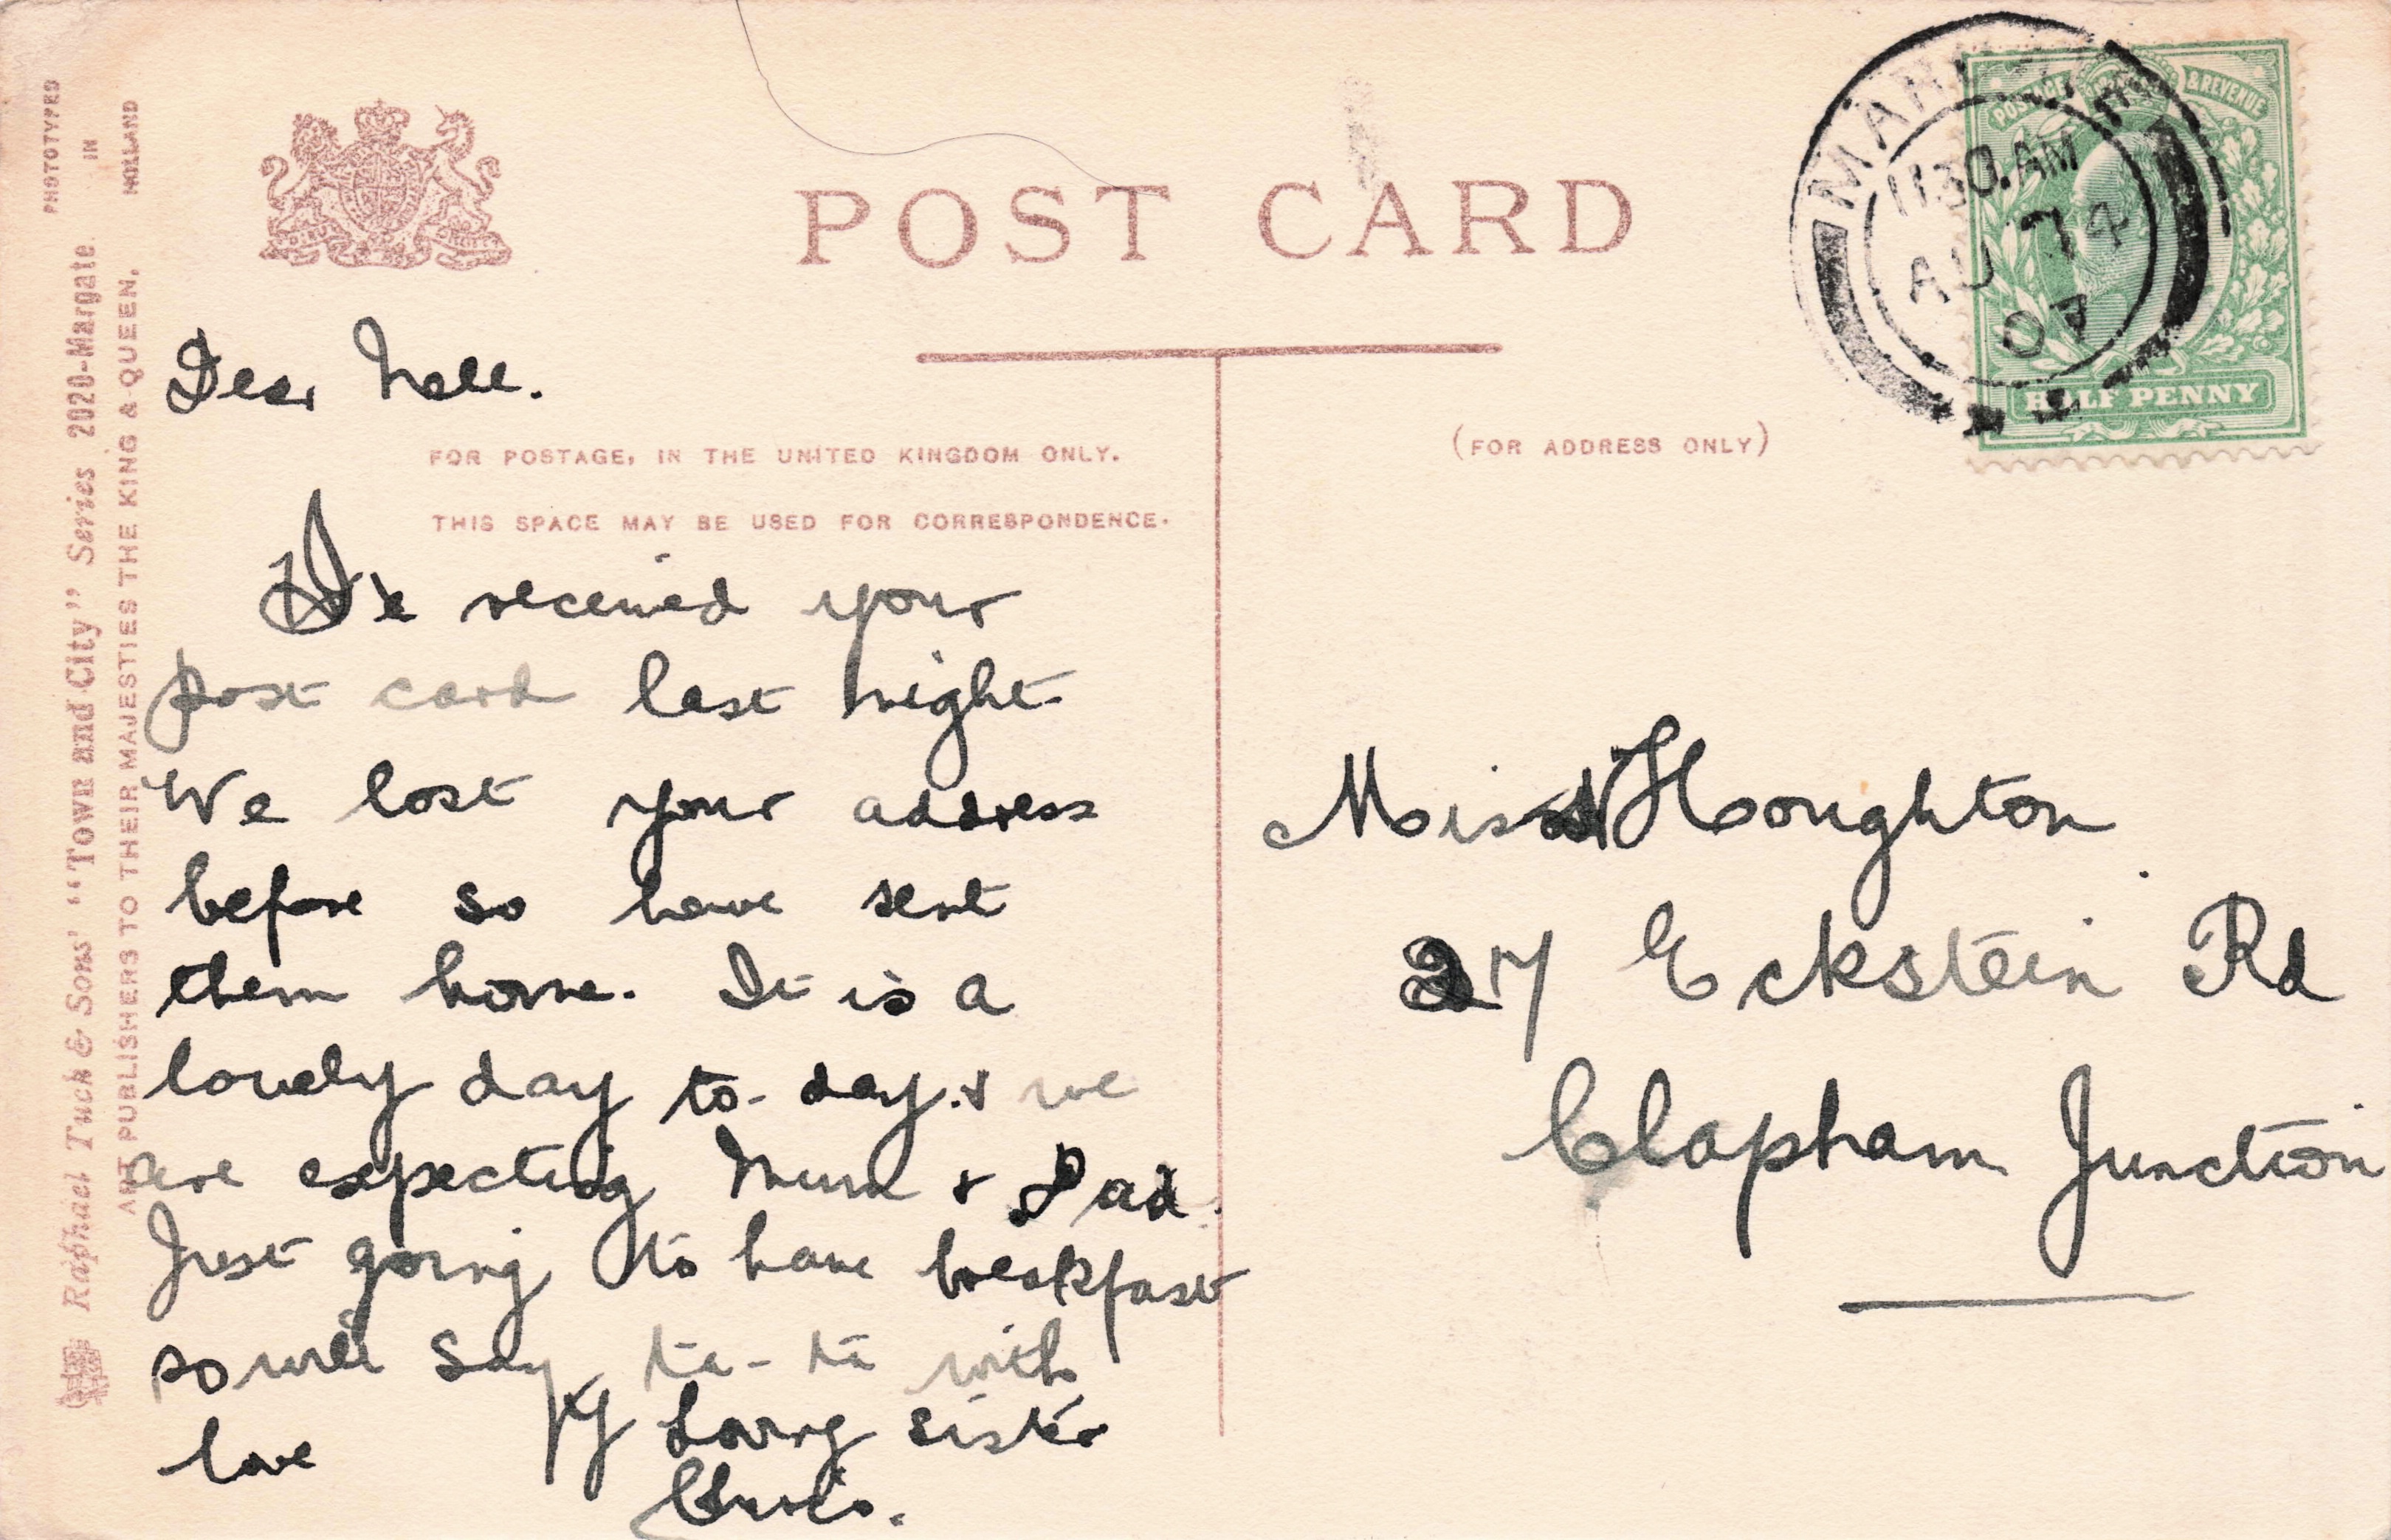 POST CARD
FOR POSTAGE, IN THE UNITED KINGDOM ONLY.
THIS SPACE MAY BE USED FOR CORRESPONDENCE.
(FOR ADDRESS ONLY)
PHOTOTYPED IN HOLLAND
Raphael Tuck & Sons' "Town and City" Series 2020-Margate
ART PUBLISHERS TO THEIR MAJESTIES THE KING & QUEEN.
POSTAGE & REVENUE
HALF PENNY
1130.AM
AU 7
07
Dear Nell.
received your
post card last night
We lost your address
before so have sent
them home. It is a
lovely day to-day. & we
are expecting Mum & Dad.
Just going to have breakfast
so will say ta-ta with
love
Yr loving sister
Chris.
Miss N Houghton
27 Eckstein Rd
Clapham Junction